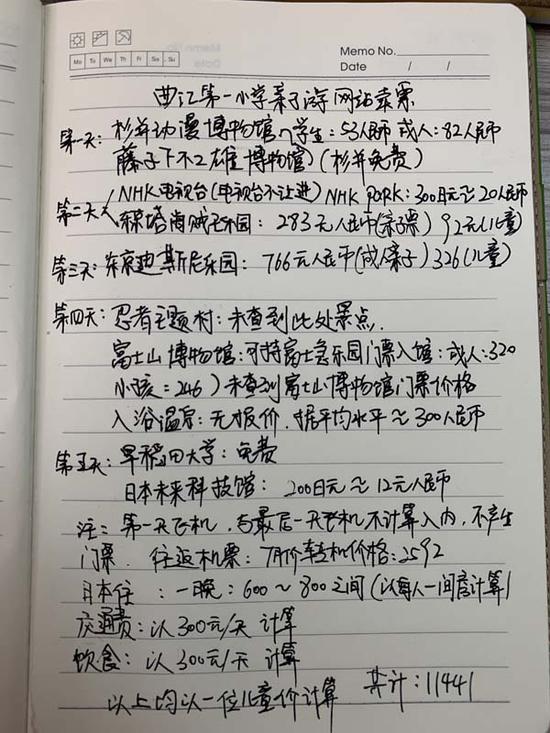 Memo No.
Mo Tu We Th Fr Sa Su
Date / /
曲江第一小学亲子游网站录票
第一天: 杉并动漫博物馆 学生: 53人民币 成人: 82人民币
藤子不二雄博物馆 (杉并免费)
第二天 NHK电视台(电视台不让进) NHK PARK: 300日元≈20人民币
东京塔海贼王乐园: 283元人民币(亲子票) 92元(儿童)
第三天: 东京迪斯尼乐园: 766元人民币(成人亲子) 326(儿童)
第四天: 忍者主题村: 未查到此处景点.
富士山博物馆: 可持富士急乐园门票入馆: 成人:320
小孩: 246) 未查到富士山博物馆门票价格
入浴温泉: 无报价. 据平均水平≈300人民币
第五天: 早稻田大学: 免费
日本未来科技馆: 200日元≈12元人民币
注: 第一天飞机, 与最后一天飞机不计算入内, 不产生
门票. 往返机票: 7月价转机价格: 2592
日本住 : 一晚: 600~800之间 (以每人一间房计算)
交通费: 以300元/天 计算
饮食: 以300元/天 计算
以上均以一位儿童价计算 共计: 11441